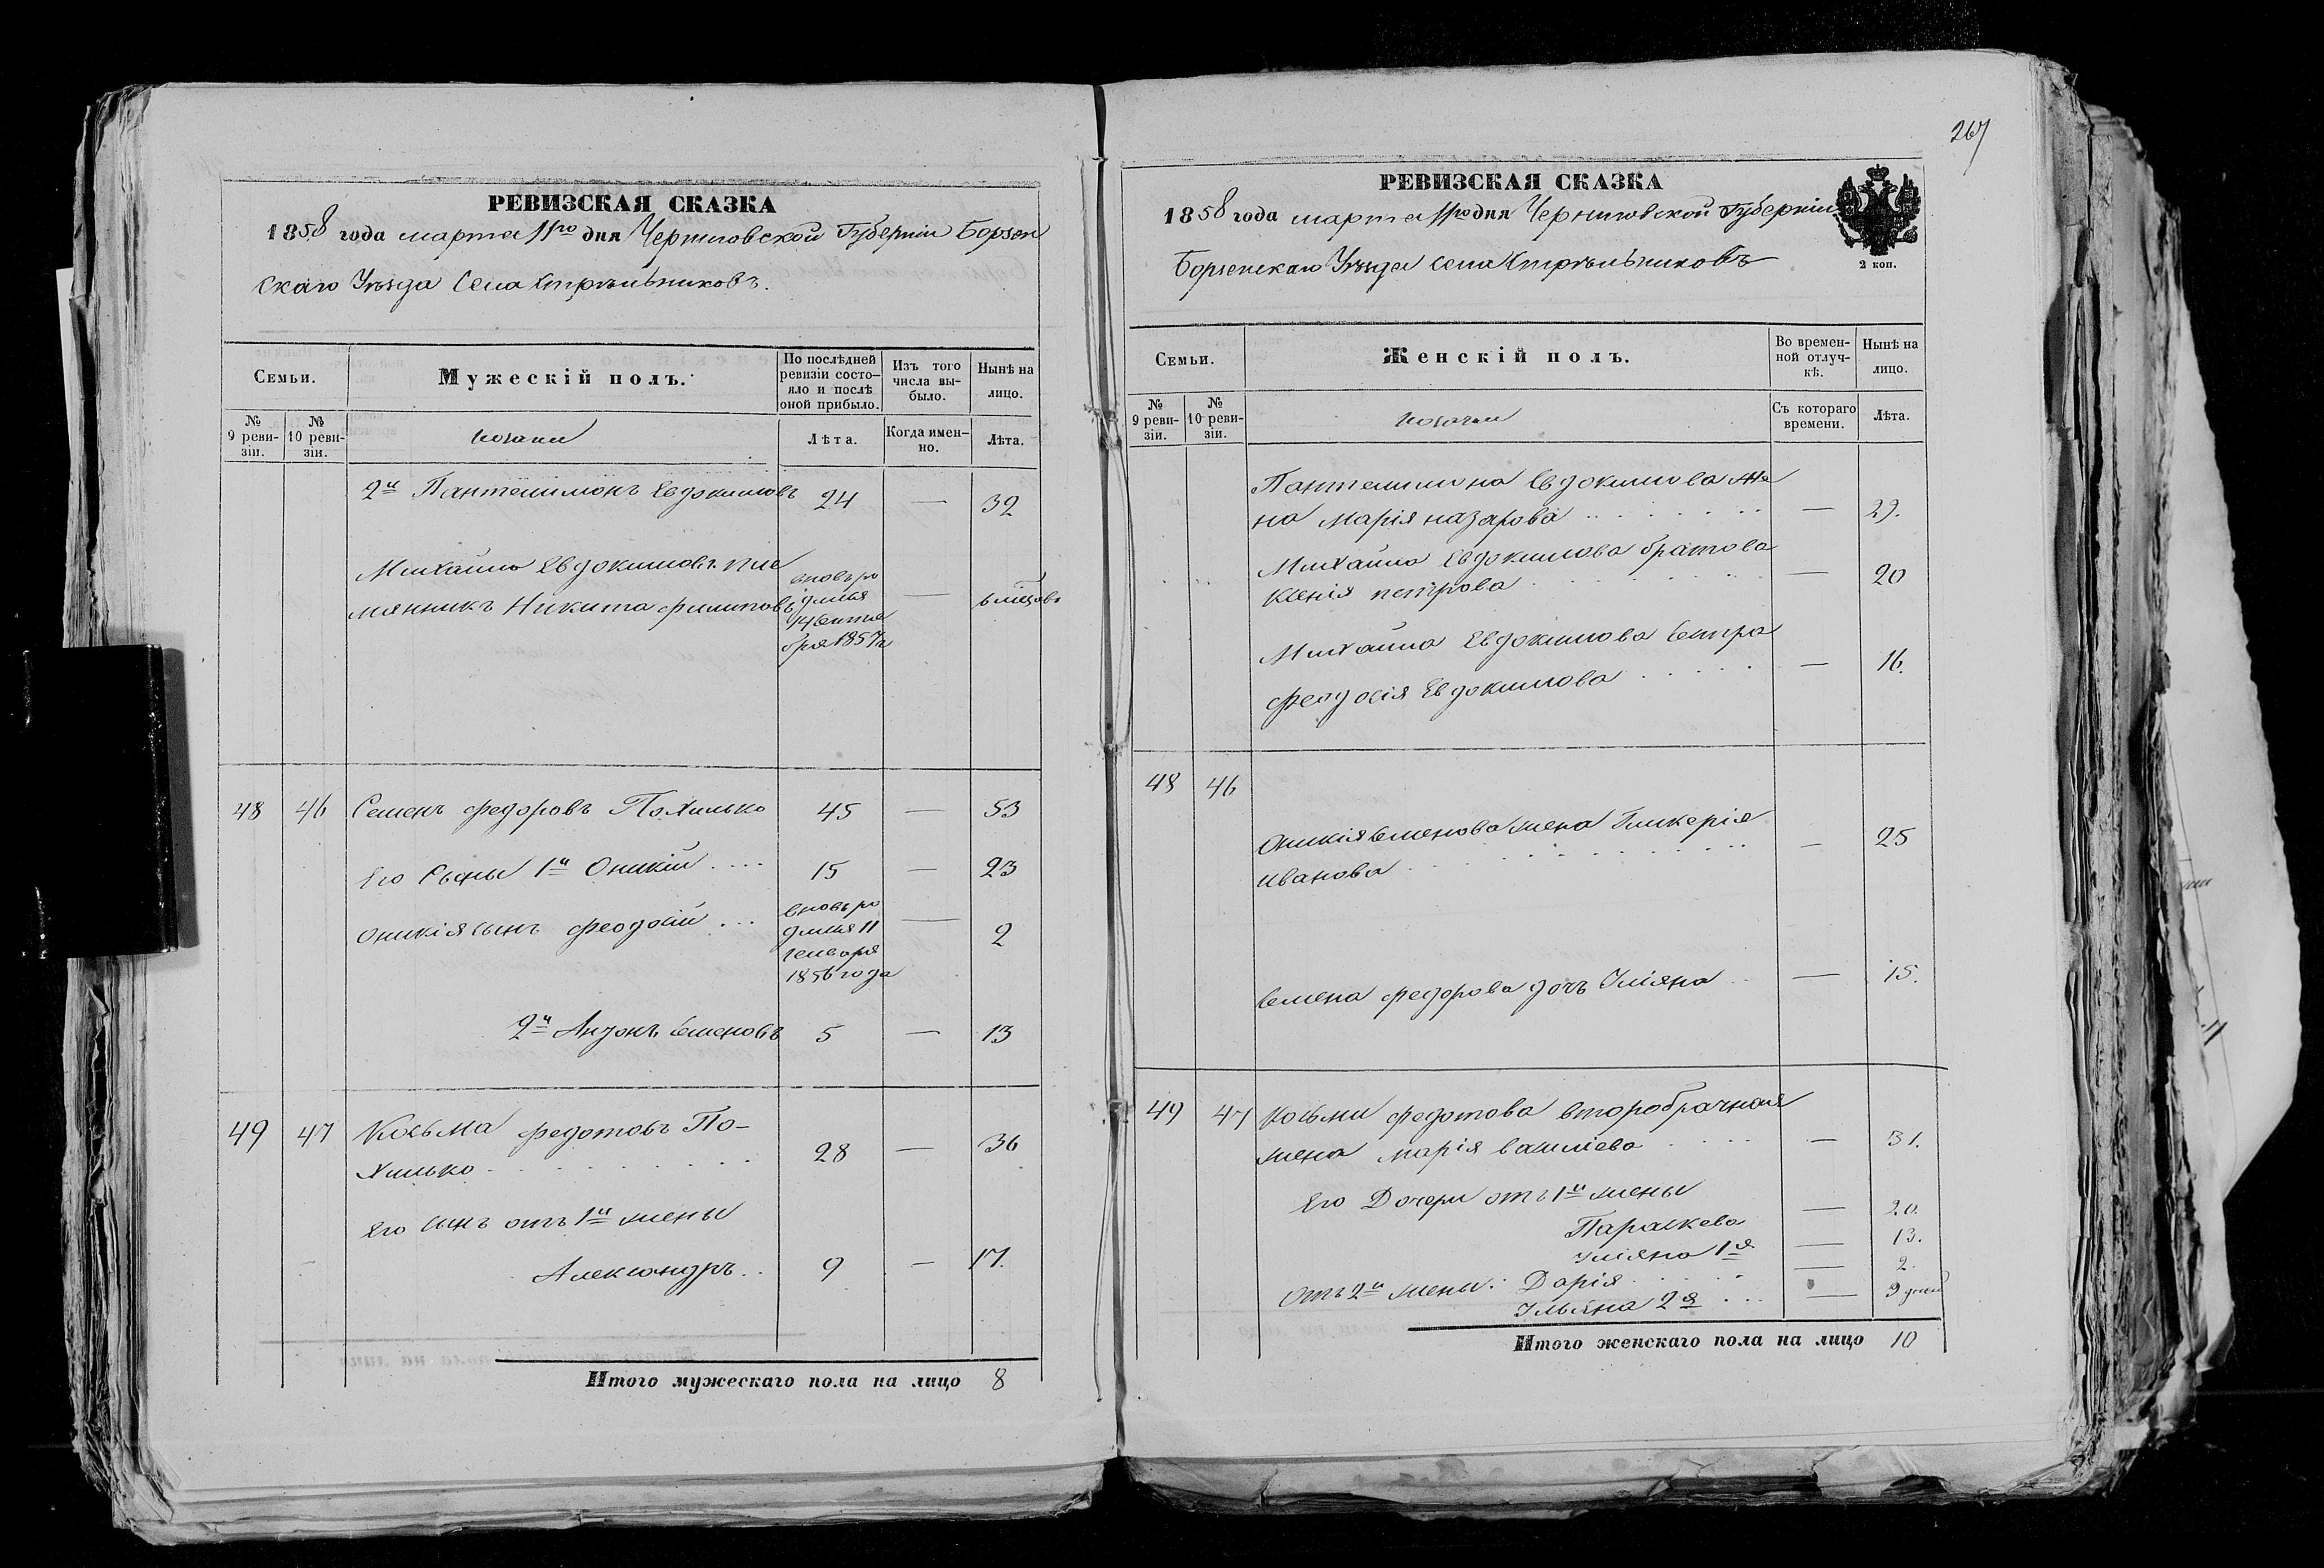 РЕВИЗСКАЯ СКАЗКА
1858 года марта 11го дня Черниговской Губерніи Борзен
скаго Уѣзда Села Стрѣльниковъ.
Семьи.
Мужескій полъ.
По послѣдней
ревизіи состо-
яло и послѣ
оной прибыло.
Изъ того
числа вы-
было.
Нынѣ на
лицо.
№
9 реви-
зіи.
№
10 реви-
зіи.
козаки
Лѣта.
Когда имен-
но.
Лѣта.
2й Пантелимонъ Евдокимовъ 24 — 32
Михайла Евдокимова пле
мянникъ Никита Филиповъ
вновь ро
дился
сентя
бря 1857
—
6 месяцовъ
48 46 Семенъ Федоровъ Похилько 45 — 53
Его Сыны 1й Оникій .... 15 — 23
Оникія сынъ Феодосій ...
вновь ро
дился 11
генваря
1856 года
—
2
2й Антонъ Семеновъ 5 — 13
49 47 Косьма Федотовъ По-
хилько 28 — 36
Его сынъ отъ 1й жены
Александръ .. 9 — 17.
Итого мужескаго пола на лицо 8
267
РЕВИЗСКАЯ СКАЗКА
1858 года марта 11го дня Черниговской Губерніи
Борзенскаго Уѣзда села Стрѣльниковъ
2 коп.
Семьи.
Женскій полъ.
Во времен-
ной отлуч-
кѣ.
Нынѣ на
лицо.
№
9 реви-
зіи.
№
10 реви-
зіи.
козачки
Съ котораго
времени.
Лѣта.
Пантелимона Евдокимова же
на Марія Назарова — 29.
Михайла Евдокимова братова
Ксенія Петрова — 20
Михайла Евдокимова сестра
Феодосія Евдокимова — 16.
48 46
Оникія Семенова жена Гликерія
Иванова — 25
Семена Федорова дочь Уліяна .. — 15.
49 47 Косьми Федотова второбрачная
жена Марія Василіева — 31.
Его Дочери отъ 1й жены
Параскева — 20.
Уліяна 1я — 13.
отъ 2й жены: Дарія — 2.
Ульяна 2я ... — 9 дней
Итого женскаго пола на лицо 10